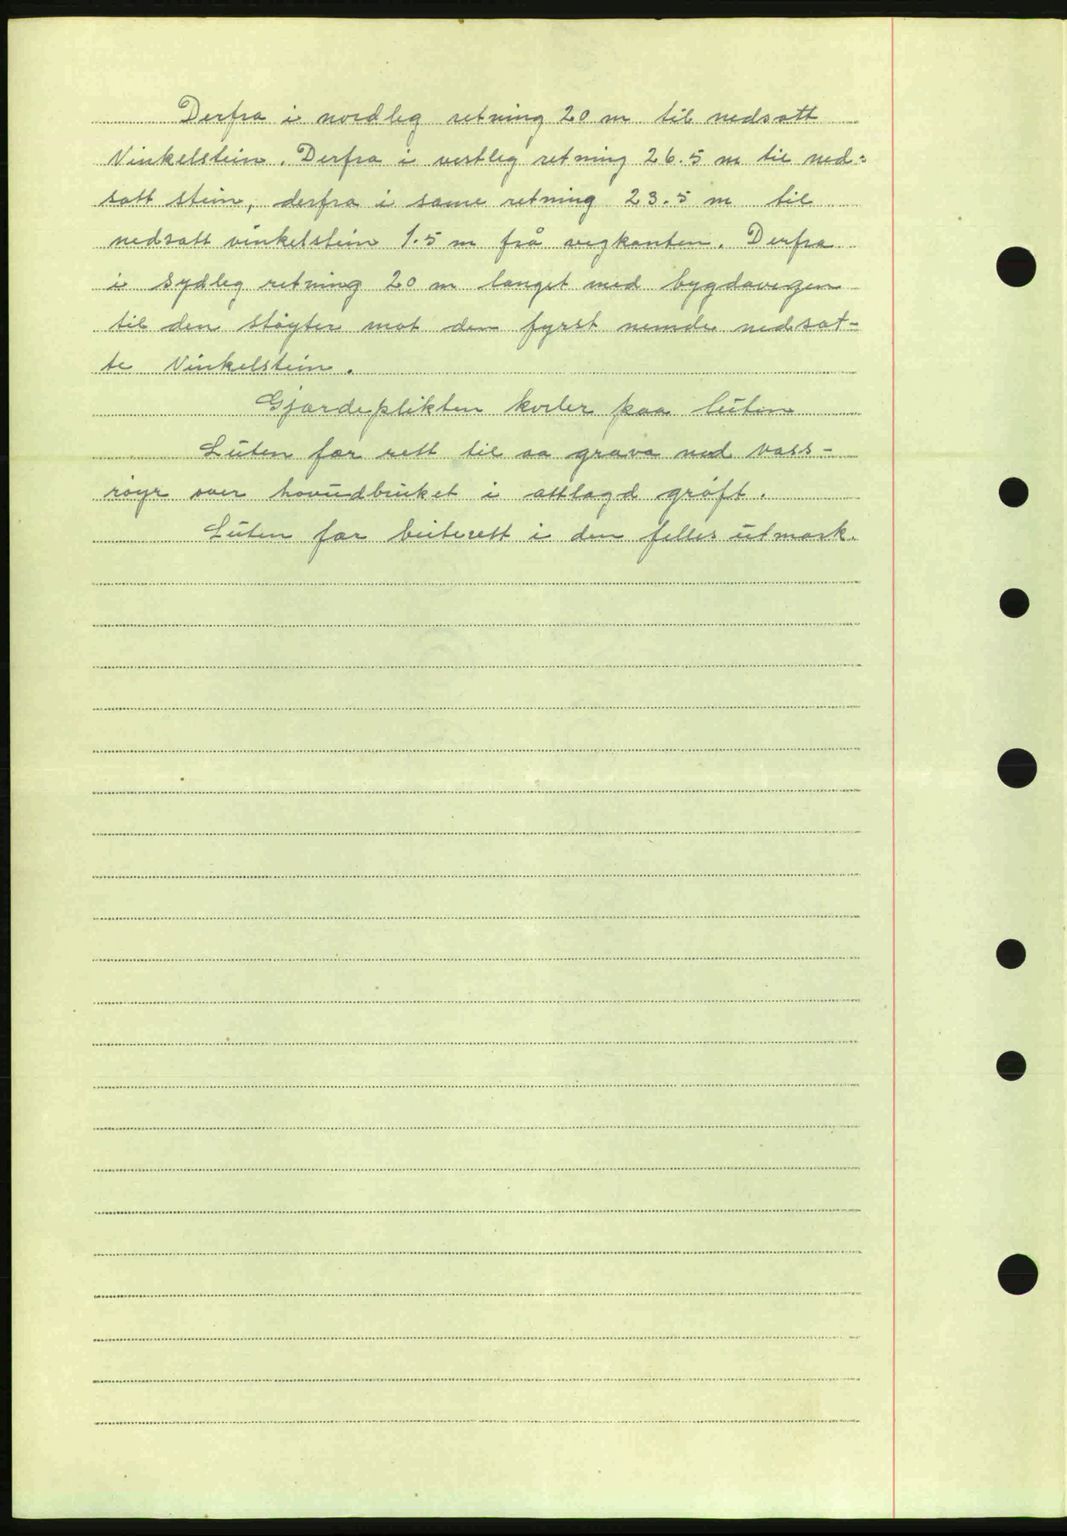 Derfra i nordleg retning 20 m til nedsatt
Vinkelstein. Derfra i vestleg retning 26.5 m til ned=
satt stein, derfra i same retning 23.5 m til
nedsatt vinkelstein 1.5 m frå vegkanten. Derfra
i sydleg retning 20 m langst med bygdavegen
til den støyter mot den fyrst nemde nedsat-
te Vinkelstein.
Gjærdeplikten kviler paa luten
Luten fær rett til aa grava ned vass-
røyr over hovudbruket i attlagd grøft.
Luten fær beiterett i den felles utmark.